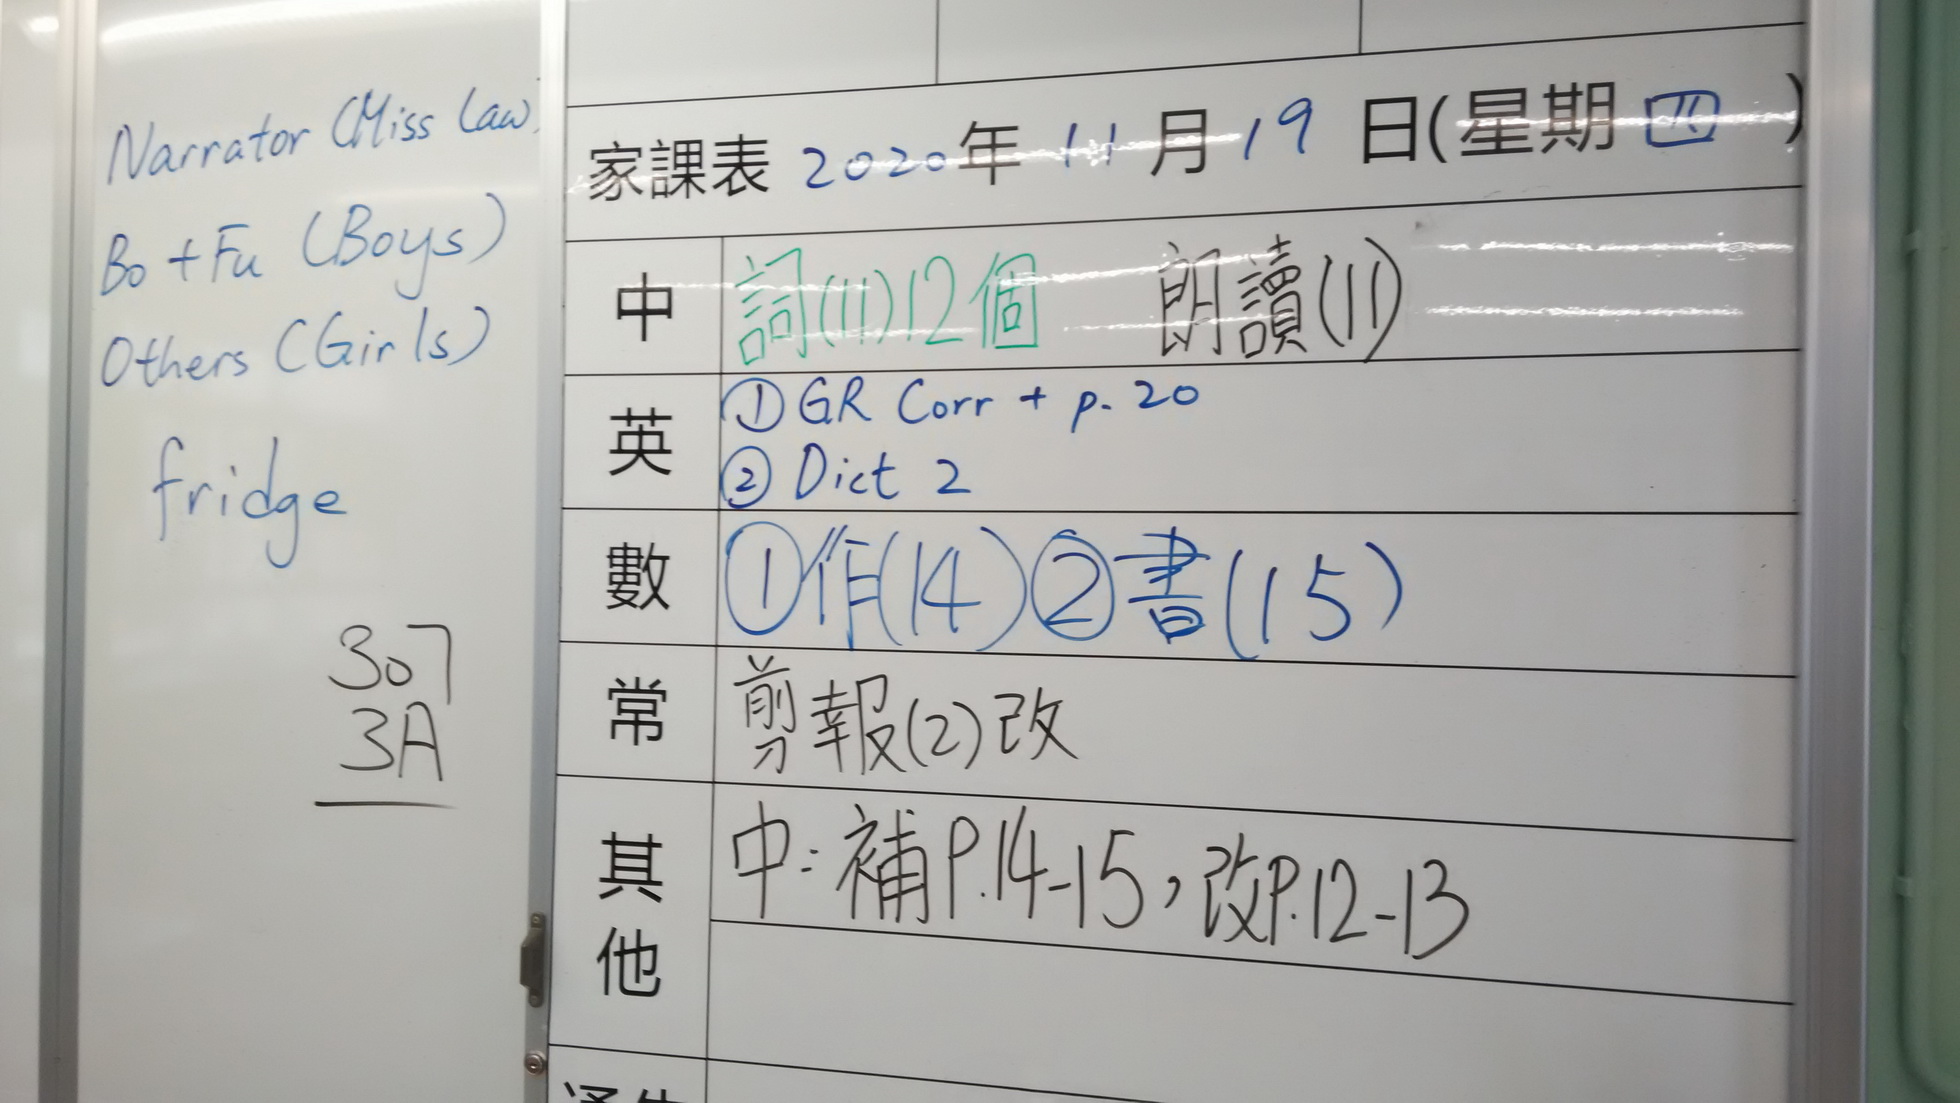 Narrator (Miss Law)
Bo + Fu (Boys)
Others (Girls)
fridge
307
3A
家課表 2020年 11月 19日(星期四)
中 詞(11)12個 朗讀(11)
英 ① GR Corr + p. 20
② Dict 2
數 ①作(14)②書(15)
常 剪報(2)改
其他 中:補P.14-15,改P.12-13